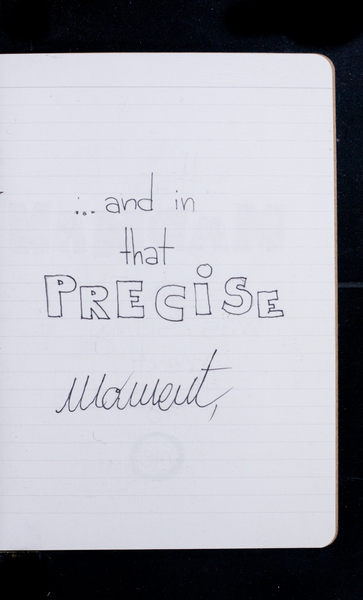 ...and in
that
PRECiSE
Moment,